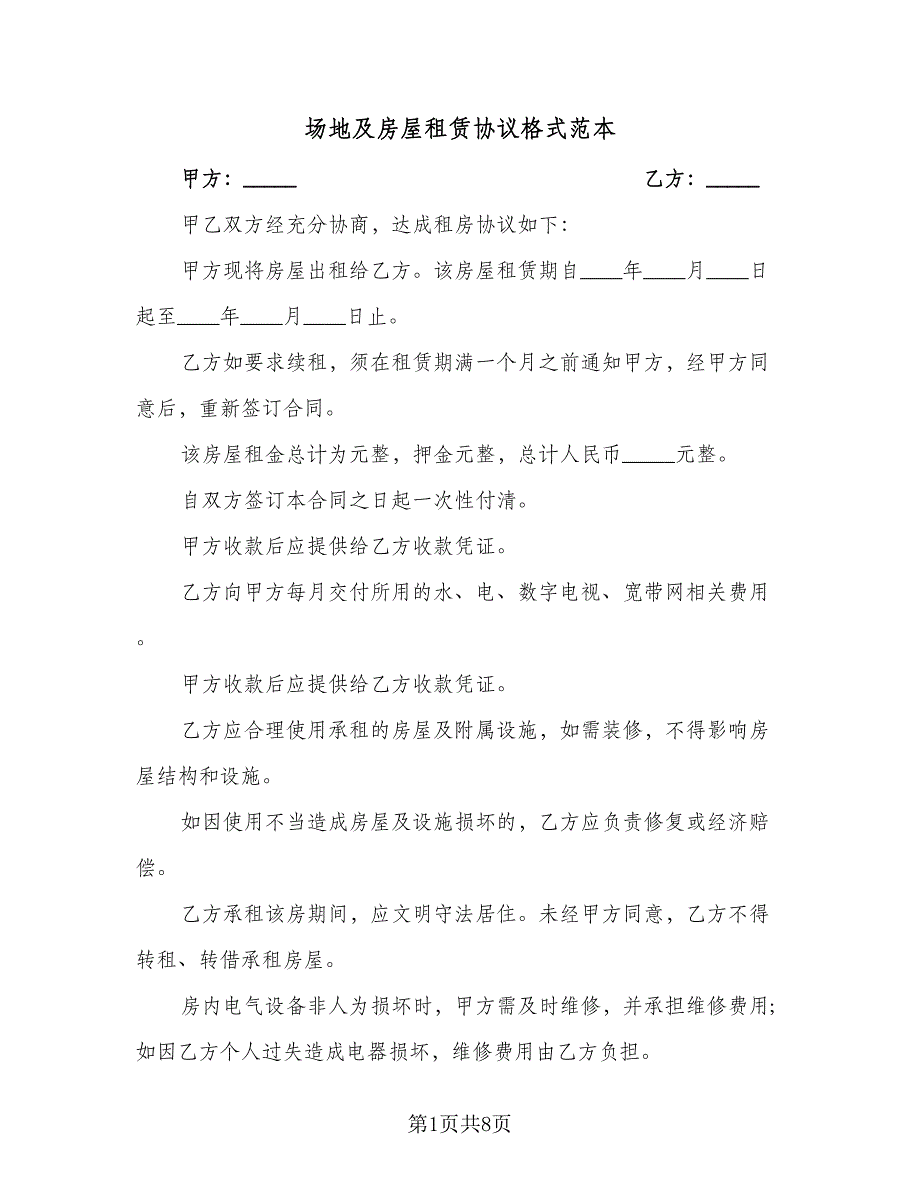 场地及房屋租赁协议格式范本
甲方：_____ 乙方：_____
甲乙双方经充分协商，达成租房协议如下：
甲方现将房屋出租给乙方。该房屋租赁期自____年____月____日
起至____年____月____日止。
乙方如要求续租，须在租赁期满一个月之前通知甲方，经甲方同
意后，重新签订合同。
该房屋租金总计为元整，押金元整，总计人民币_____元整。
自双方签订本合同之日起一次性付清。
甲方收款后应提供给乙方收款凭证。
乙方向甲方每月交付所用的水、电、数字电视、宽带网相关费用
。
甲方收款后应提供给乙方收款凭证。
乙方应合理使用承租的房屋及附属设施，如需装修，不得影响房
屋结构和设施。
如因使用不当造成房屋及设施损坏的，乙方应负责修复或经济赔
偿。
乙方承租该房期间，应文明守法居住。未经甲方同意，乙方不得
转租、转借承租房屋。
房内电气设备非人为损坏时，甲方需及时维修，并承担维修费用;
如因乙方个人过失造成电器损坏，维修费用由乙方负担。
第1页共8页